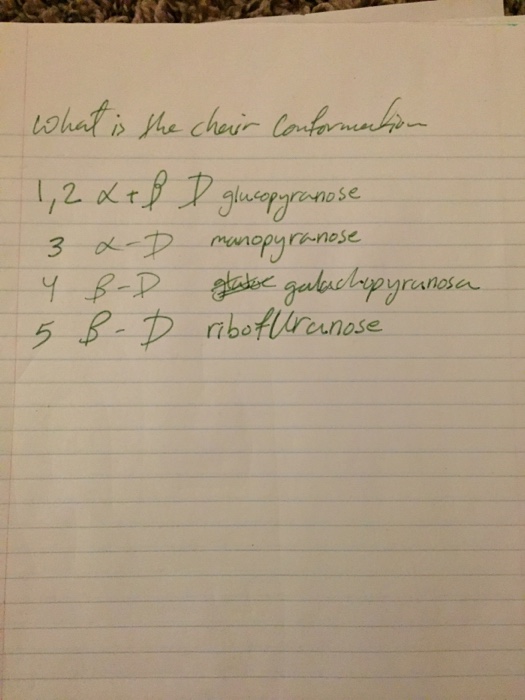 What is the chair Conformation
1,2 α + β D glucopyranose
3 α-D manopyranose
4 β-D galactopyranosa
5 β-D ribofUranose